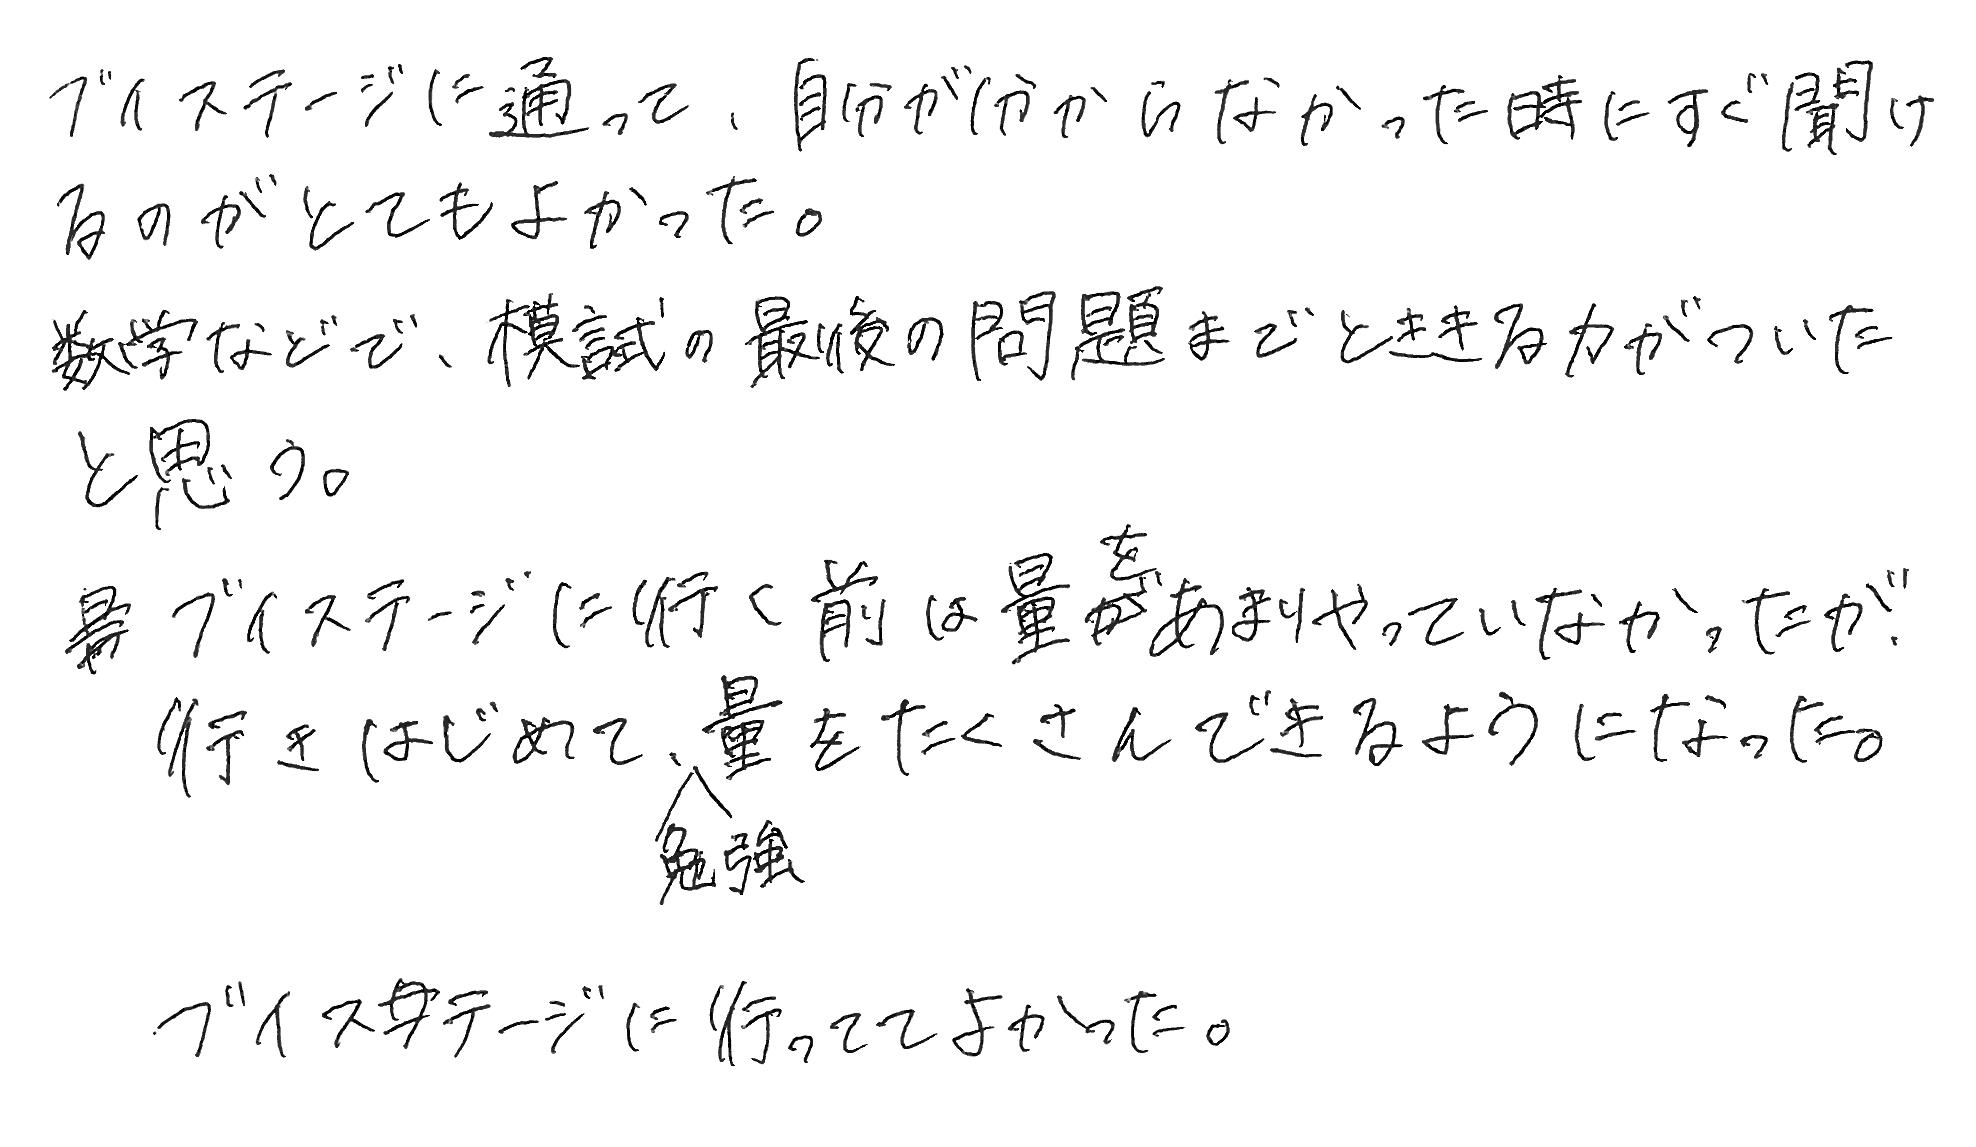 ブイステージに通って、自分が分からなかった時にすぐ聞け
るのがとてもよかった。
数学などで、模試の最後の問題までとききる力がついた
と思う。
ブイステージに行く前は量をあまりやっていなかったが、
行きはじめて、勉強量をたくさんできるようになった。
ブイステージに行っててよかった。